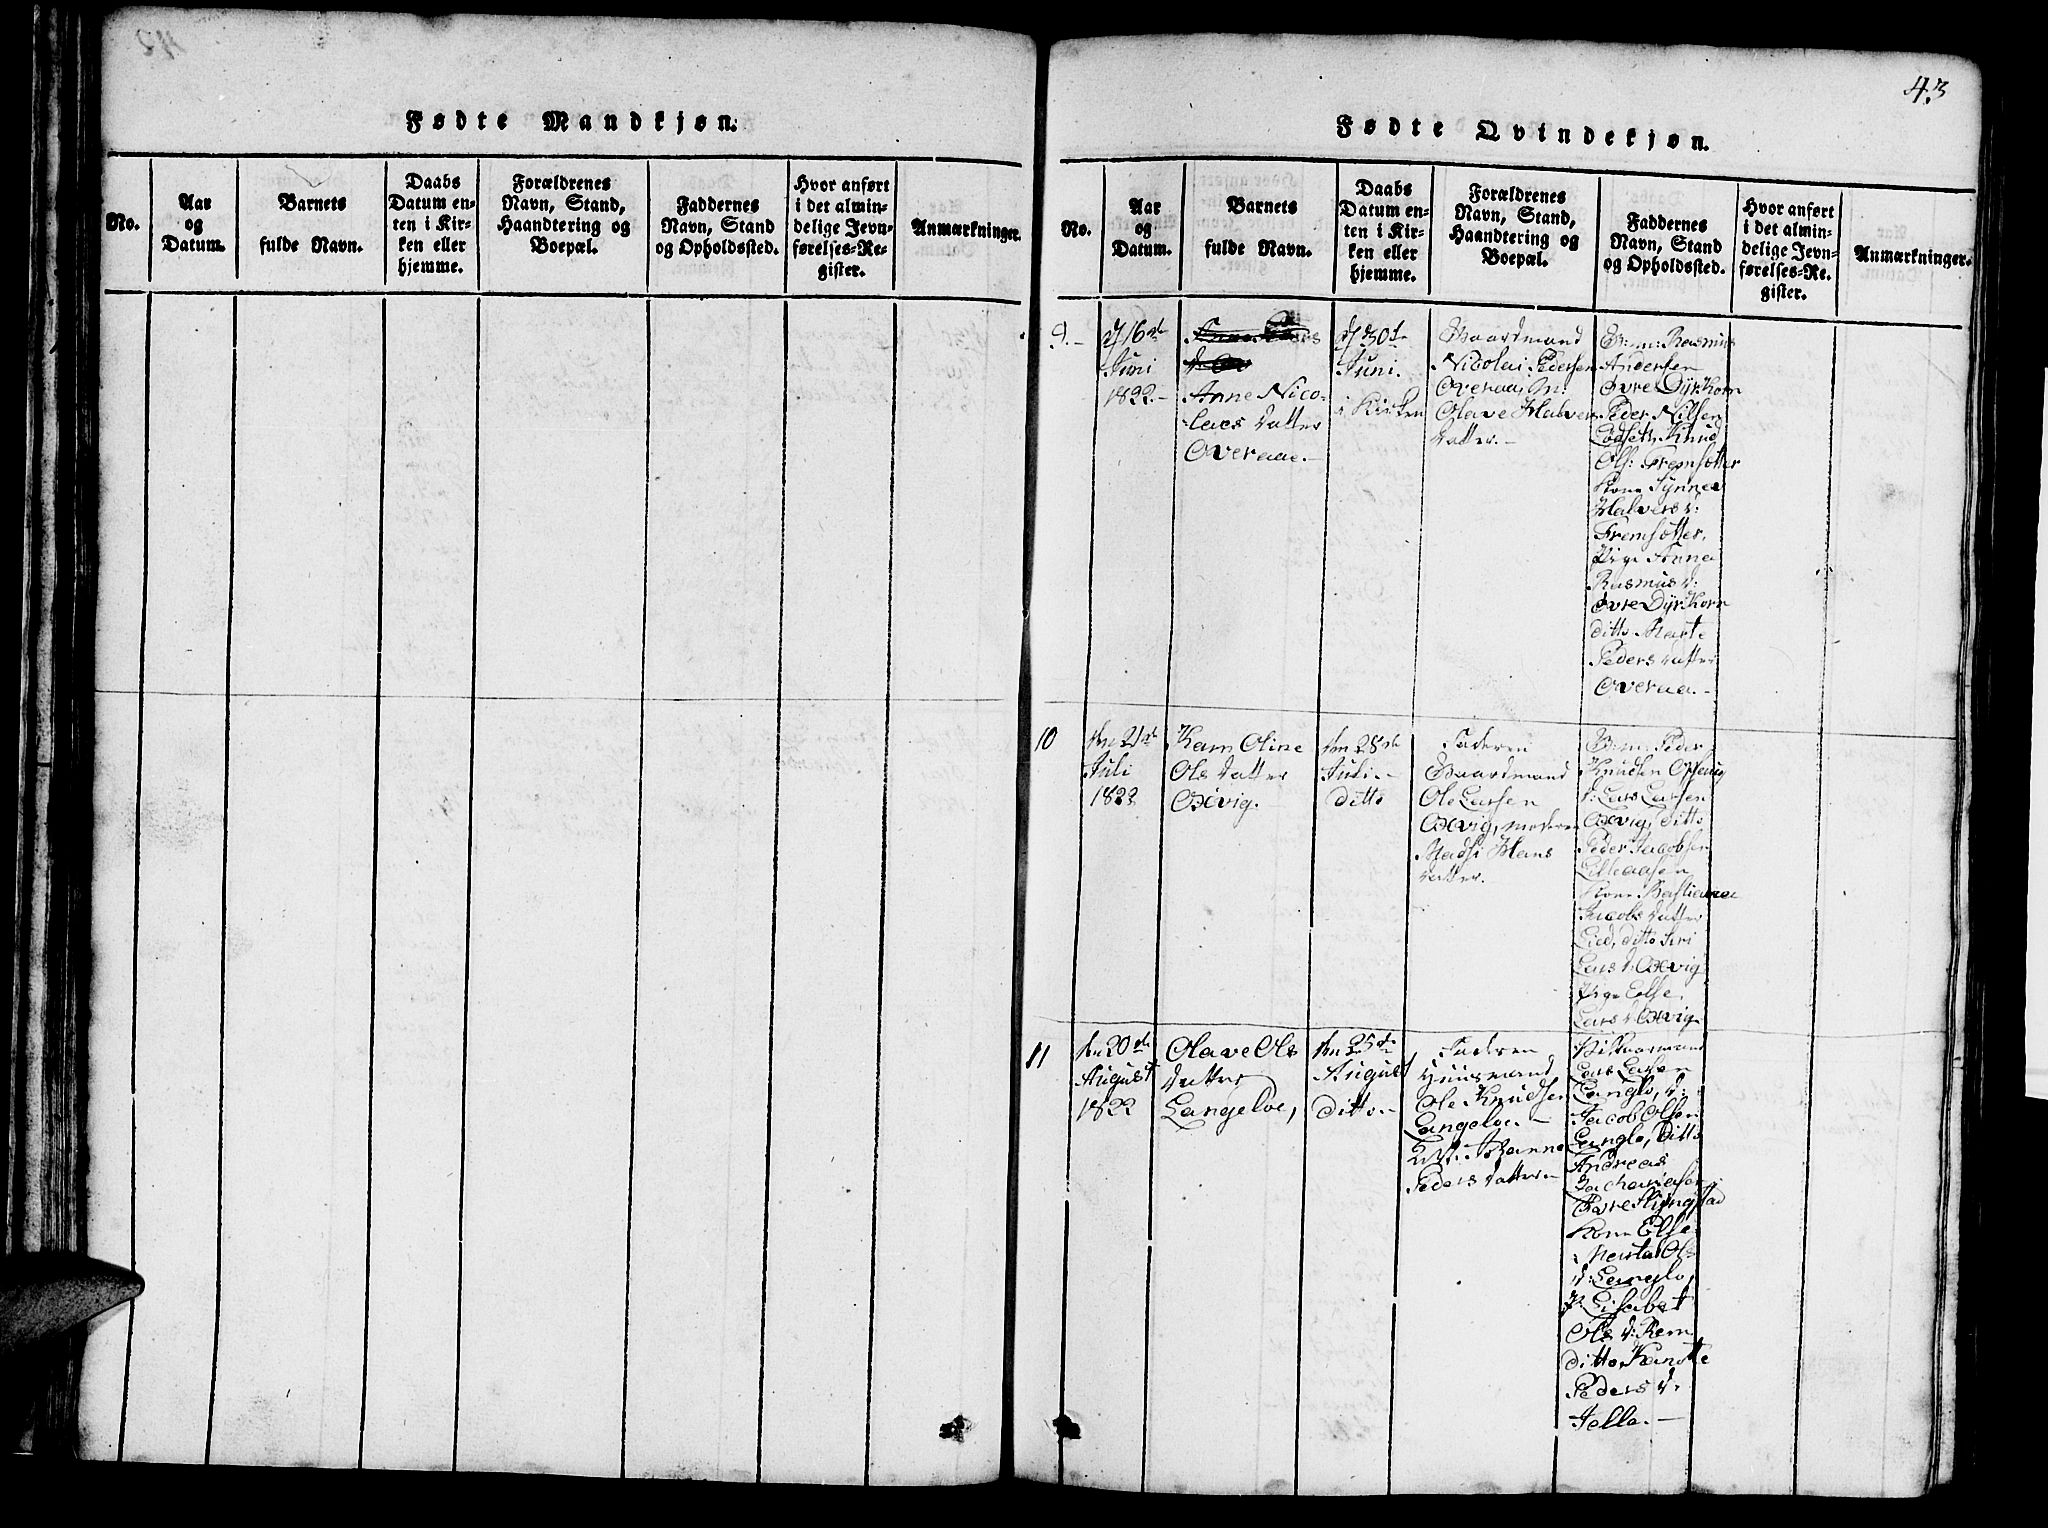 43
Fødte Mandkjøn.
No.
Aar
og
Datum.
Barnets
fulde Navn.
Daabs
Datum en-
ten i Kir-
ken eller
hjemme.
Forældrenes
Navn, Stand,
Haandtering og
Boepæl.
Faddernes
Navn, Stand
og Opholdssted.
Hvor anført
i det almin-
delige Jevn-
førelses-Re-
gister.
Anmærkninger.
Fødte Qvindekjøn.
No.
Aar
og
Datum.
Barnets
fulde Navn.
Daabs
Datum en-
ten i Kir-
ken eller
hjemme.
Forældrenes
Navn, Stand,
Haandtering og
Boepæl.
Faddernes
Navn, Stand
og Opholdssted.
Hvor anført
i det almin-
delige Jevn-
førelses-Re-
gister.
Anmærkninger.
9.-
16de
Juni
1822.-
Anne Nico-
laes Datter
Overaae.-
30te
Juni.
i Kirken
Gaardmand
Nicolai Pedersen
Overaa, M:
Olave Halvers
Datter.-
G: m: Rasmus
Andersen
Øvre Dyrkorn
Peder Nilsen
Lødseth, Knud
Ols: Fremsøtter
Kone Synnev
Halvers d:
Fremsøtter,
Pige Anna
Rasmus d:
Øvre Dyrkorn
ditto Marte
Peders datter
Overaa.-
10
den 21de
Juli
1822
Karn Oline
Ols datter
Oxvig.
den 28de
Juli.-
Ditto
Faderen
Gaardmand
Ole Larsen
Oxvig, moderen
Madsi Hans
datter.
G: m: Peder
Knudsen Oxvig
d: Lars Larsen
Oxvig, Ditto
Peder Jacobsen
Lilleaasen
Kone Bastiana
Jacobs datter
Lied, ditto Siri
Lars d: Oxvig
Pige Else
Lars d: Oxvig
11
den 20de
August
1822
Olave Ols
datter
Langeloe,
den 25de
August
Ditto.-
Faderen
Huusmand
Ole Knudsen
Langeloe.-
Peders datter
Lars Larsen
Langlo, d:
Jacob Olsen
Langlo, Ditto
Andreas
Zachariasen
Øvre Styngstad
Kone Else
Marta Ols
d: Langlo,
P. Lisabet
Ols d: Rem
ditto Kanotte
Peders d:
Tolle.-